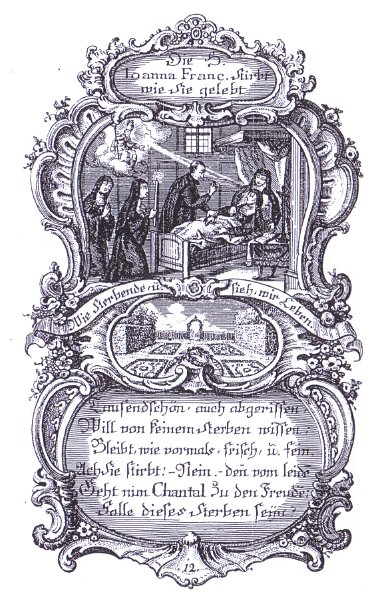 Die S.
Ioanna Franc. stirbt
wie sie gelebt
Die sterbende, u. sieh, wir Leben.
Tausendschön, auch abgerissen
Will von keinem sterben wissen.
Bleibt, wie vormals, frisch, ŭ. fein.
Ach sie stirbt! - Nein. - deñ vom leide
Geht nim Chantal Zu den Freude:
Falle dieses sterben
12.